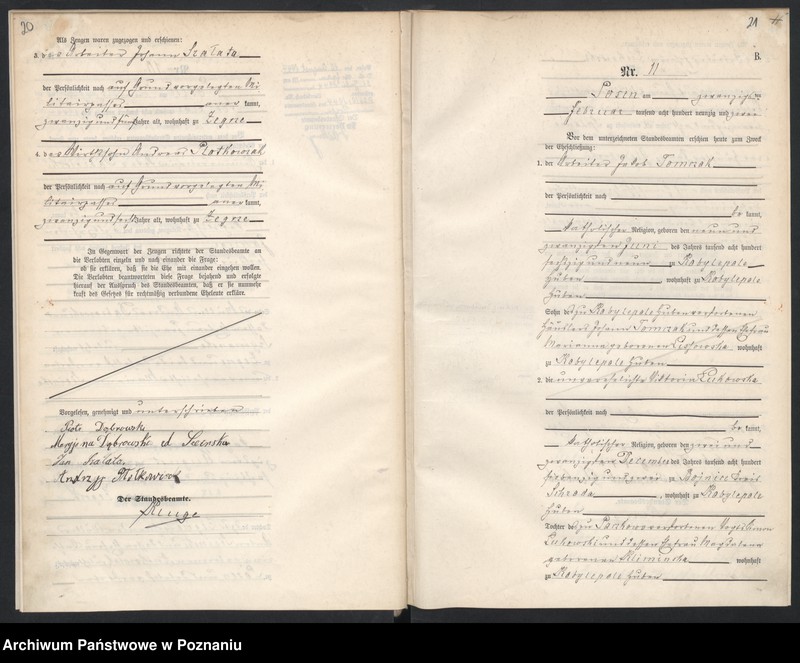 20
Als Zeugen waren zugezogen und erschienen:
3. der Arbeiter Johann Szalata
der Persönlichkeit nach auf Grund vorgelegten Mi
litairpasses aner kannt,
zwanzig und fünf Jahre alt, wohnhaft zu Zegrze
4. der Wirthssohn Andreas Ratkowiak
der Persönlichkeit nach auf Grund vorgelegten Mi
litairpasses aner kannt,
zwanzig und sechs Jahre alt, wohnhaft zu Zegrze
In Gegenwart der Zeugen richtete der Standesbeamte an
die Verlobten einzeln und nach einander die Frage:
ob sie erklären, daß sie die Ehe mit einander eingehen wollen.
Die Verlobten beantworteten diese Frage bejahend und erfolgte
hierauf der Ausspruch des Standesbeamten, daß er sie nunmehr
kraft des Gesetzes für rechtmäßig verbundene Eheleute erkläre.
Vorgelesen, genehmigt und unterschrieben
Piotr Dąbrowski
Maryjana Dąbrowska
Jan Szalata
Andrzyj
Der Standesbeamte.
21
B.
Nr. 11
Posen am zwanzig ten
Februar tausend acht hundert neunzig und zwei
Vor dem unterzeichneten Standesbeamten erschien heute zum Zweck
der Eheschließung:
1. der Arbeiter Jakob Tomczak
der Persönlichkeit nach
be kannt,
katholischer Religion, geboren den neun und
zwanzigsten Juni des Jahres tausend acht hundert
sechszig und neun zu Kobylepole
Huben, wohnhaft zu Kobylepole
Huben
Sohn des zu Kobylepole Huben verstorbenen
Häuslers Johann Tomczak und dessen Ehefrau
Marianna geborenen wohnhaft
zu Kobylepole Huben
2. die unverehelichte Viktoria Lukowska
der Persönlichkeit nach
be kannt,
katholischer Religion, geboren den zwei und
zwanzigsten Dezember des Jahres tausend acht hundert
siebenzig und zwei zu Mojnice Kreis
Schroda, wohnhaft zu Kobylepole
Huben
Tochter des zu verstorbenen Vogts
Lukowski und dessen Ehefrau Magdalena
geborenen Kliminska wohnhaft
zu Kobylepole Huben
Archiwum Państwowe w Poznaniu